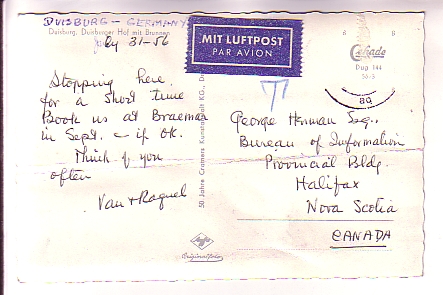 DUISBURG - GERMANY
Duisburg, Duisburger Hof mit Brunnen
July 31-56
Stopping here
for a short time
Book us at Braemar
in Sept. - if OK.
Think of you
often
Van & Raquel
MIT LUFTPOST
PAR AVION
50 Jahre Cramers Kunstanstalt KG., D
Agfa
Cekade
Dup 144
George Herman Esq.,
Bureau of Information
Provincial Bldg.
Halifax
Nova Scotia
CANADA